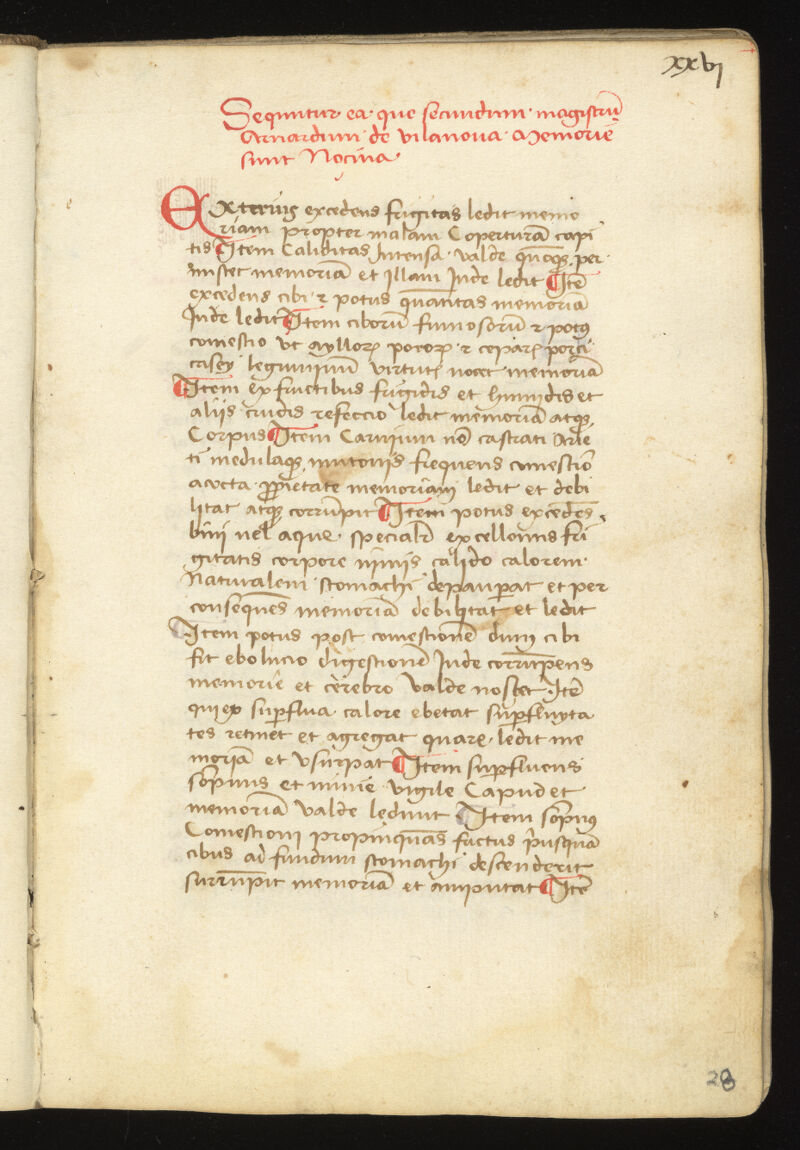 xxvj
Sequntur ea · que secundum · magistrū
Arnardum · de vilanova · Memorie
sunt Nocina ·
Exterius excedens frigitas ledit memo
riam propter malam Coperturā capi
tis Item Caliditas Intensa · valde per
memoriā et Illam Inde ledit Itē
excedens cibi · ⁊ potus quātitas memoriā
Inde ledit Item ciborū fumosorū ⁊ potꝰ
comestio vt ayllorꝝ porrorꝝ · ⁊ ceparꝝ porci
casey leguminū nocet memoriā
Item ex fructibus frigidis et humidis et
aliis crudis refeccio ledit memoriā atqꝫ
Corpus Item Carnium nō castrati Arie
ti medulaqꝫ mutonis frequens comestio
acocta memoriam ledit et debi
litat atqꝫ corrūpit Item potus excedēs
bini uel aque · excellentis fri
gitatis corpore nimis calido calorem ·
Naturalem stomachi depaupat et per
consequēs memoriā debilitat et ledit
Item potus post comestionē dum cibi
fit ebolucio digestionē Inde corrūpens
memorie et cerebro valde nocet · Itē
quiex supflua · calore ebetat supfluyta
tes retinet et agregat quare · ledit me
moriā et vsurpat Item supfluens
sompnus et minie vigile Capud et
memoriā valde ledunt Item sompnꝰ
Comestioni propinquās factus p̄usquā
cibus ad fundum stomachi descenderit
surrūpit memoriā et amputat Itē
28